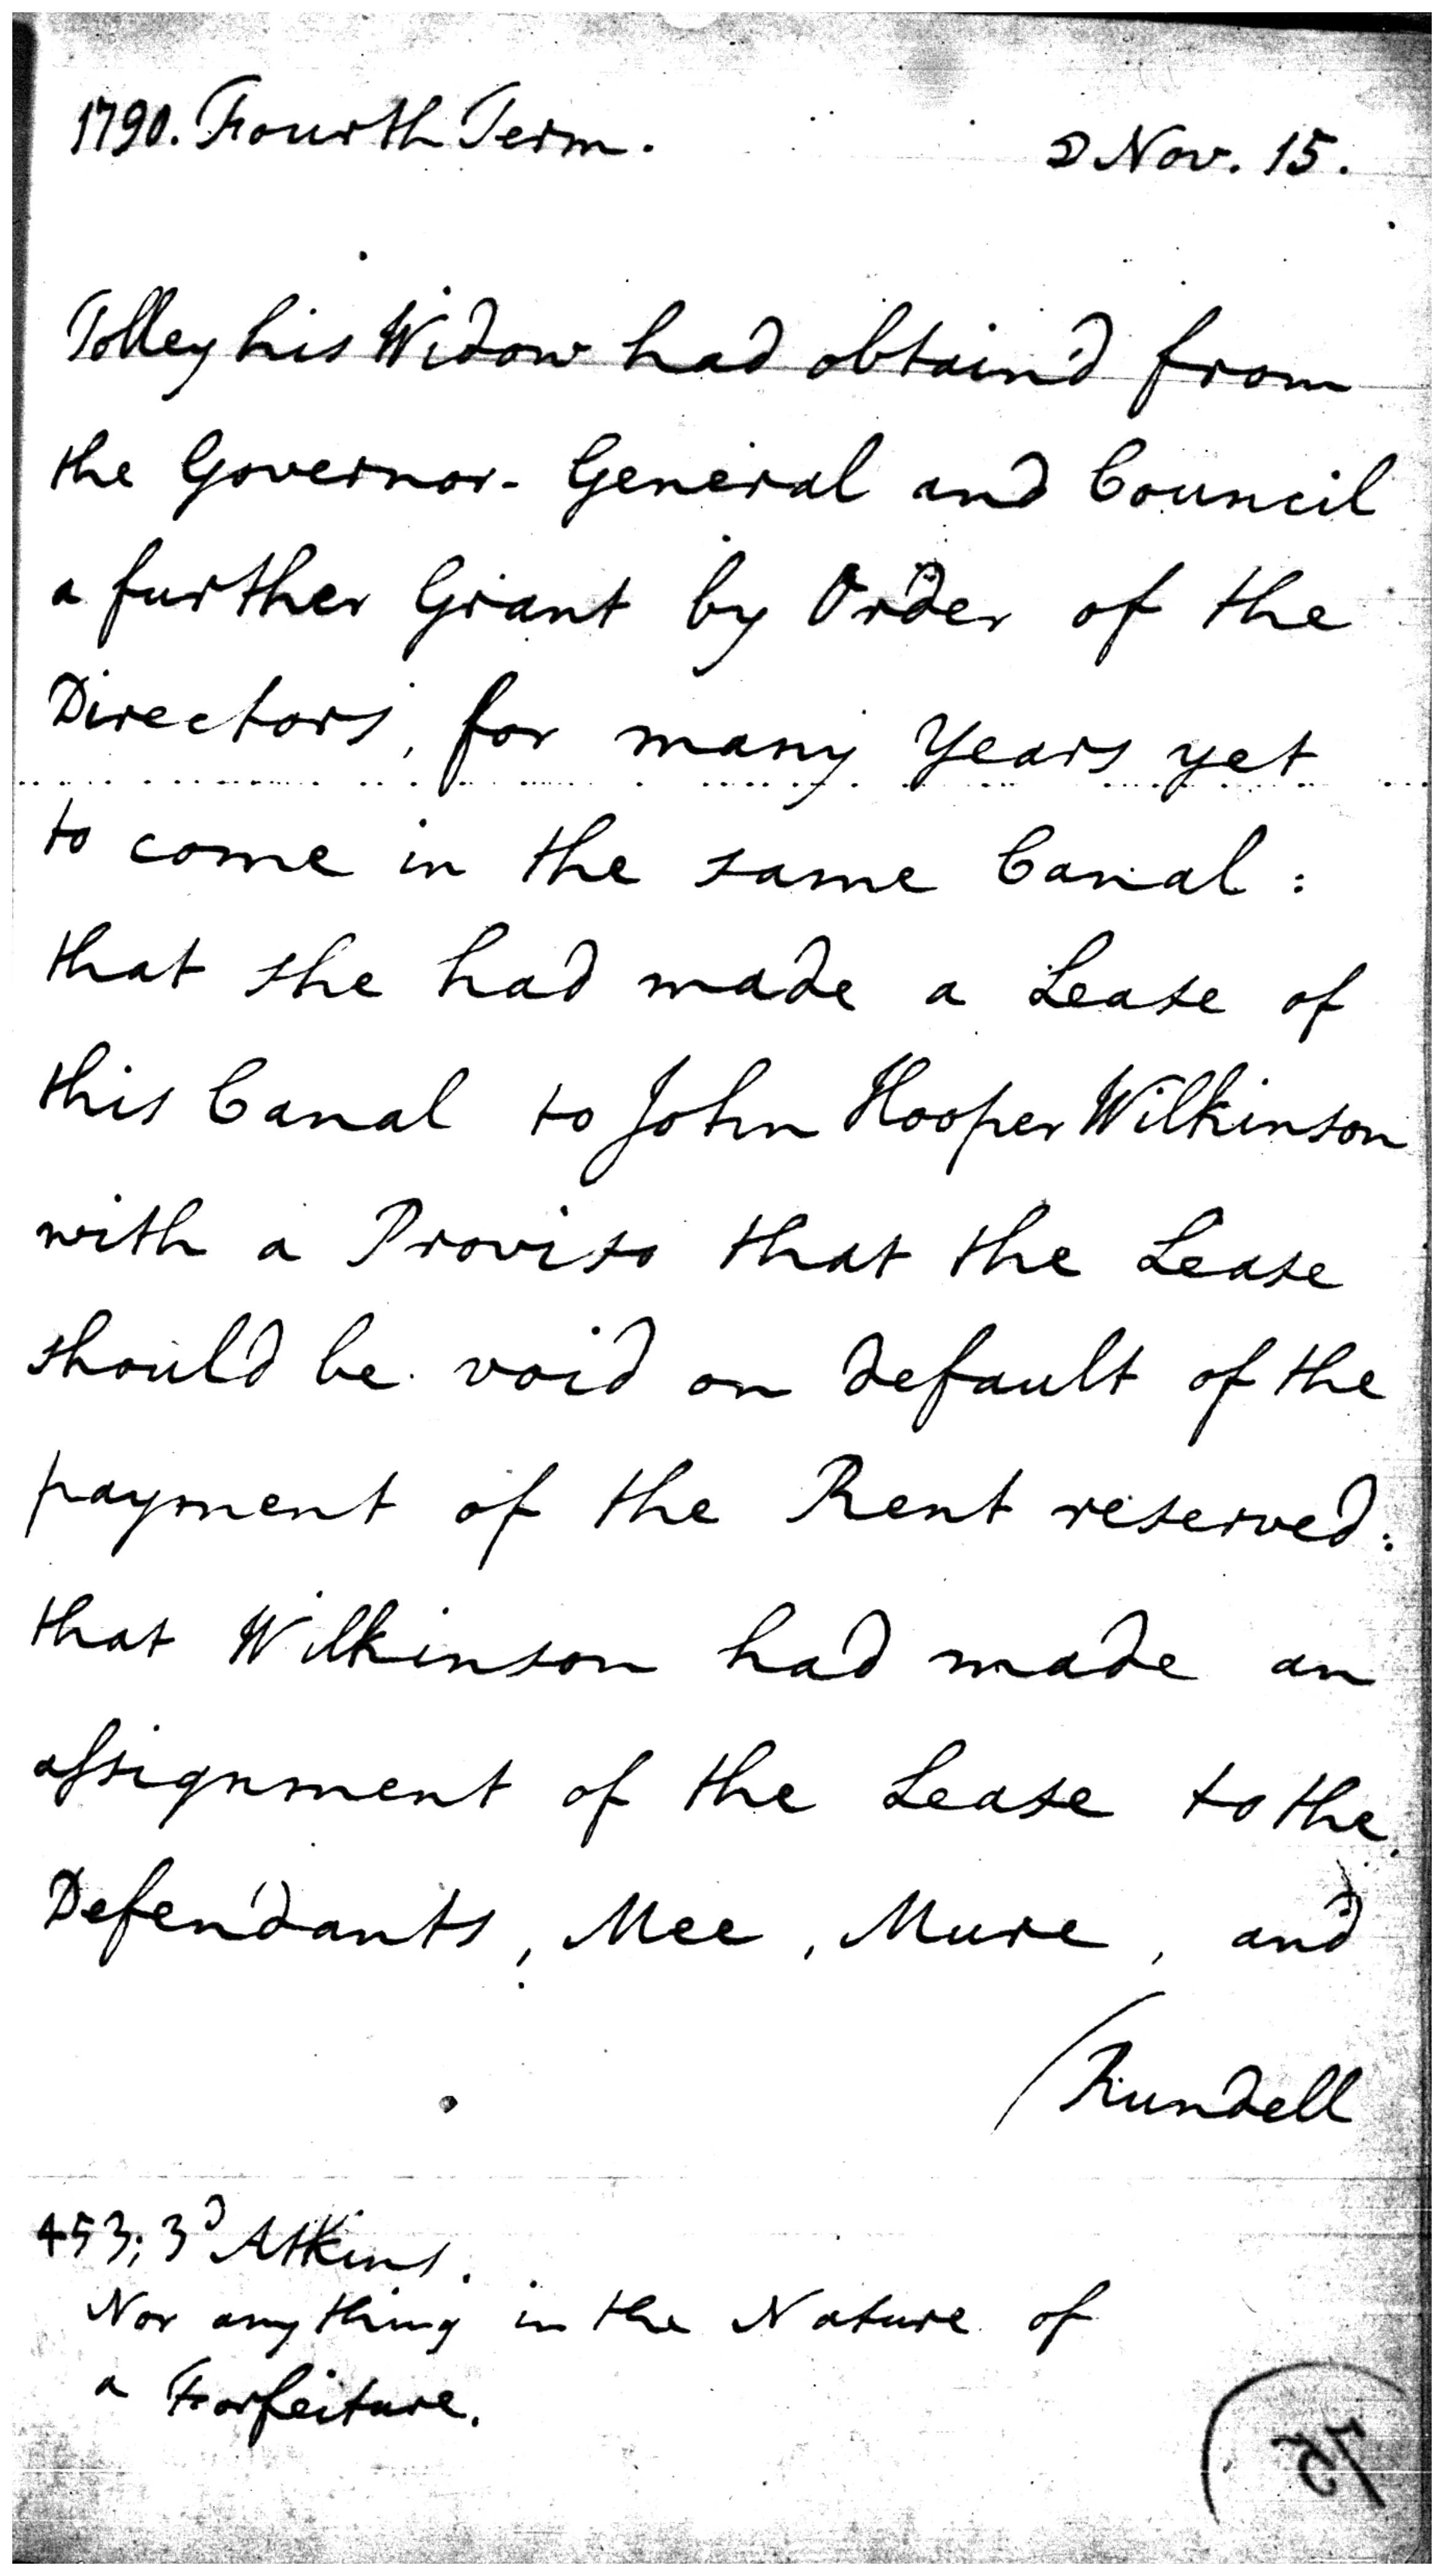 1790. Fourth Term.
☽ Nov. 15.
Tolley his Widow had obtain'd from
the Governor-General and Council
a further Grant by Order of the
Directors, for many Years yet
to come in the same Canal:
that she had made a Lease of
this Canal to John Hooper Wilkinson
with a Proviso that the Lease
should be void on default of the
payment of the Rent reserved:
that Wilkinson had made an
aſsignment of the Lease to the
Defendants, Mee, Mure, and
/Rundell
453; 3d Atkins.
Nor any thing in the Nature of
a Forfeiture.